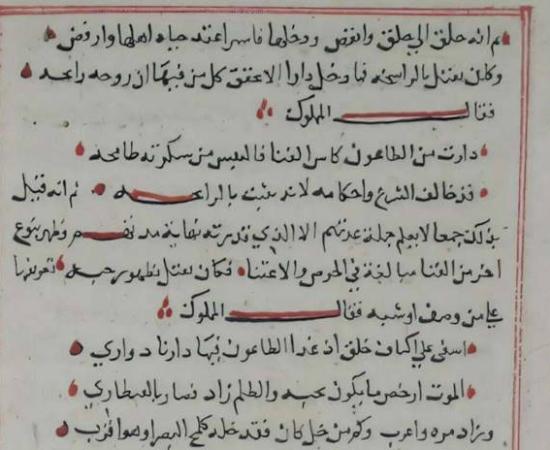 ثم انه حلق الى جلق وانفض ودخلها فاسرا عند حياه اهلها وارفض
وكان يقتل بالرايحه فما دخل دارا الا تحقق كل من فيها ان روحه رايحه
فقال المملوك
دارت من الطاعون كاس الفنا فالنفس من سكرته طافحه
قد خالف الشرع واحكامه لانه يثبت بالرايحه ثم انه قتل
بذلك جمعا لا يعلم جملة عدتهم الا الذي قدر نهاية مدتهم وظهر بنوع
اخر من الفنا مبالغة في الحرص والاعتنا فكان يقتل بظهور حبه
على من وصف اوشبه فقال المملوك
اسفى على اكناف جلق اذ غدا الطاعون فيها ذا زناد وارى
الموت ارخص ما يكون بحبه والظلم زاد فصار بالقنطار
وزاد مره واعرب وكم من جل كان فقد خله كلمح البصر او هو اقرب